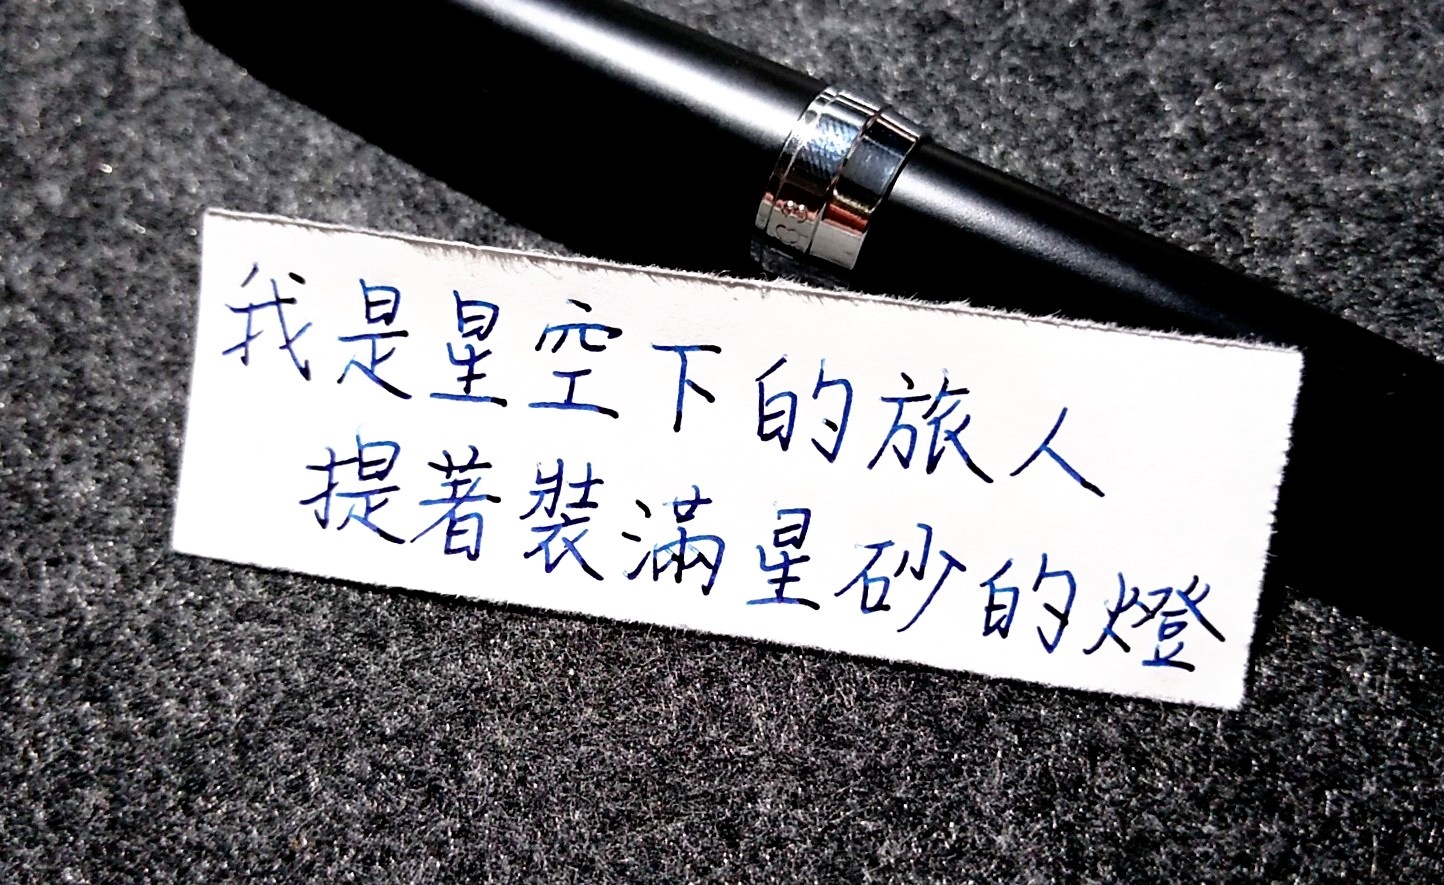 我是星空下的旅人
提著裝滿星砂的燈